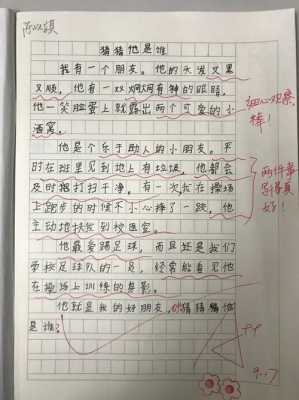 猜猜他是谁
我有一个朋友。他的头发又黑
又顺，他有一双炯炯有神的眼睛，
他一笑脸蛋上就露出两个可爱的小
酒窝。
细心观察，
棒！
他是个乐于助人的小朋友。平
时在班里见到地上有垃圾，他都会
及时把打扫干净。有一次我在操场
上跑步的时候不小心摔了一跤，他
主动地扶我到校医室。
两件事
写得真
好！
他最爱踢足球，而且还是我们
学校足球队的一员，经常能看见他
在操场上训练的身影。
他就是我的好朋友，你猜猜他
是谁？
9.17